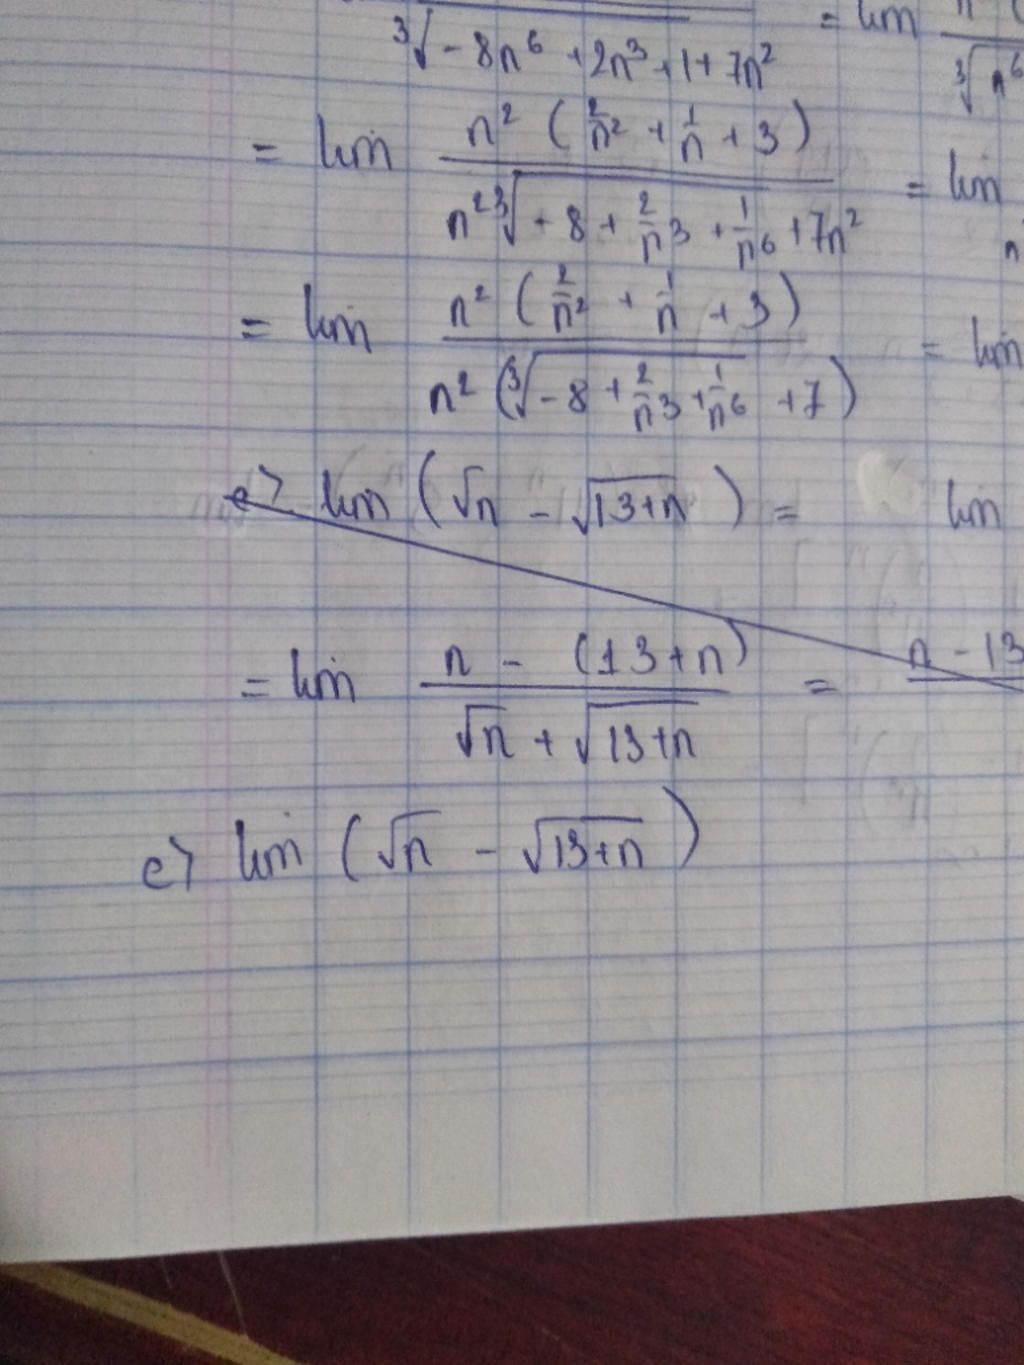 ∛-8n⁶ + 2n³ + 1 + 7n² = lim ∛n⁶
= lim n² (2/n² + 1/n + 3) / n² ∛+8 + 2/n³ + 1/n⁶ + 7n² = lim
= lim n² (2/n² + 1/n + 3) / n² (∛-8 + 2/n³ + 1/n⁶ + 7) = lim
e> lim (√n - √13+n) = lim
= lim n - (13+n) / √n + √13+n = n - 13
e> lim (√n - √13+n)